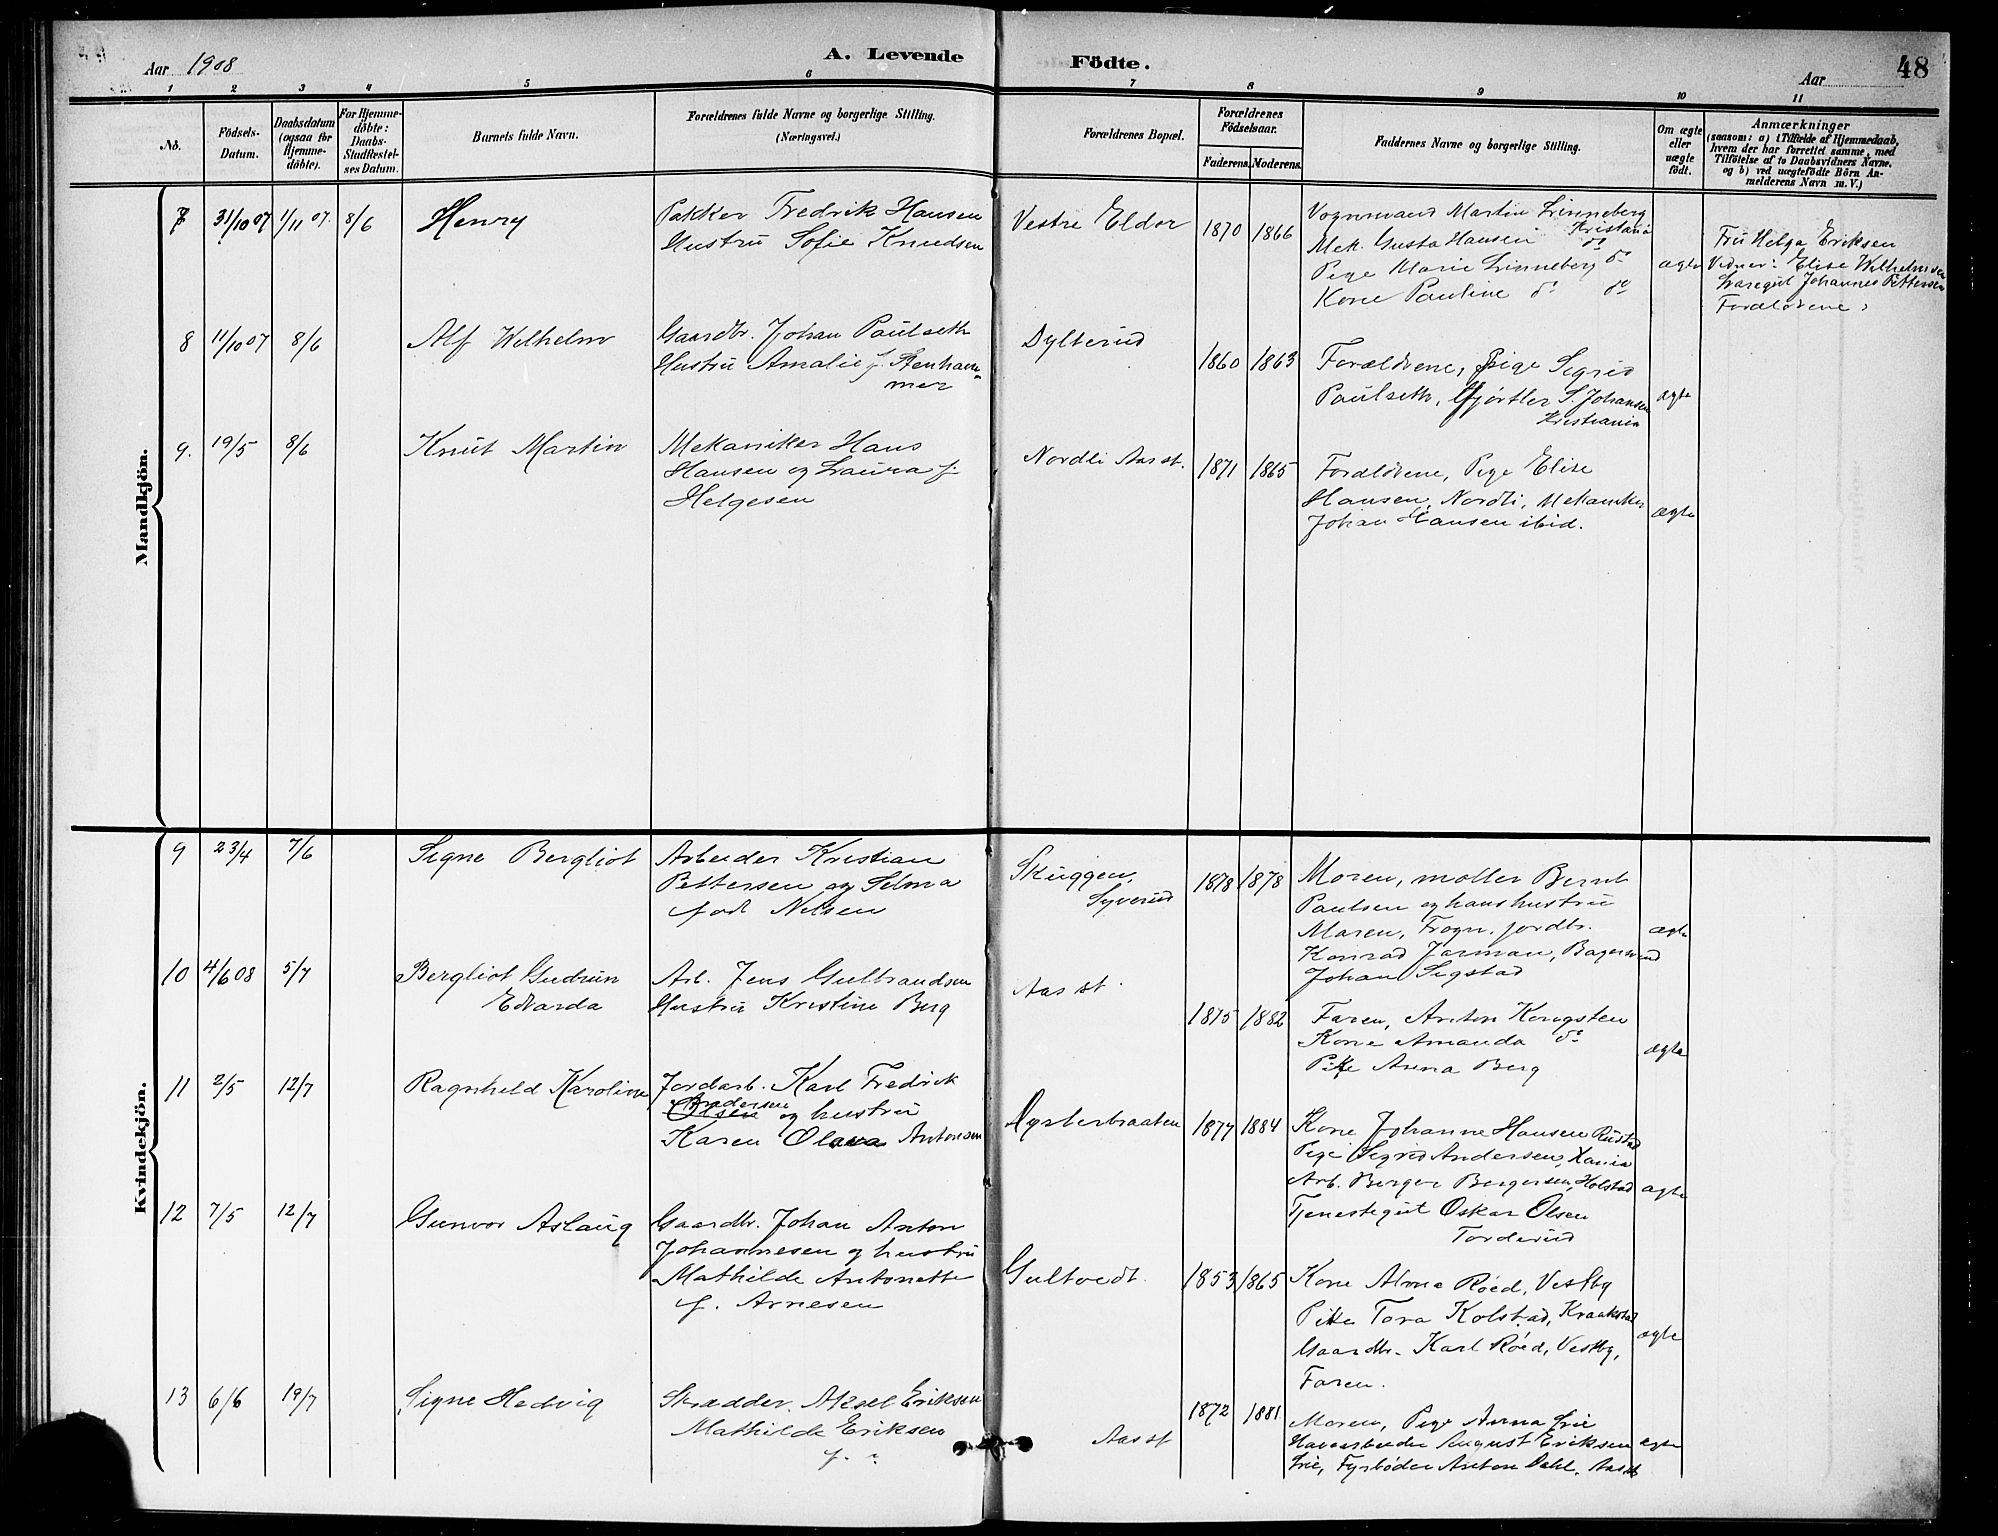 Aar 1908
A. Levende
Födte.
Aar
48
1 2 3 4 5 6 7 8 9 10 11
No.
Födsels-
Datum.
Daabsdatum
(ogsaa for
Hjemme-
döbte).
For Hjemme-
döbte:
Daabs-
Stadfæstel-
ses Datum.
Barnets fulde Navn.
Forældrenes fulde Navne og borgerlige Stilling.
(Næringsvei.)
Forældrenes Bopæl.
Forældrenes
Födselsaar.
Faderens. Moderens.
Faddernes Navne og borgerlige Stilling.
Om ægte
eller
uægte
födt.
Anmærkninger
(saasom: a) i Tilfælde af Hjemmedaab,
hvem der har forrettet samme, med
Tilföielse af to Daabsvidners Navne,
og b) ved uægtefödte Börn An-
melderens Navn m. V.)
Mandkjön.
7 31/10 07 1/11 07. 8/6 Henry
Pakker Fredrik Hansen
Hustru Sofie Knudsen
Vestre Eldor 1870 1866
Vognmand Martin Linneberg
Kristania
Mek. Gusta Hansen do
Pige Marie Linneberg do
Kone Pauline do do
ægte
Fru Helga Eriksen
Vidner: Elise Wilhelmsen
Læregut Johannes Pettersen
Forældrene
8 11/10 07 8/6 Alf Wilhelm
Gaardbr. Johan Paulseth
Hustru Amalie f. Stenham-
mer
Dylterud 1860 1863
Forældrene, Pige Sigrid
Paulseth, Gjørtler S. Johansen
Kristiania
ægte
9. 19/5 8/6 Knut Martin
Mekaniker Hans
Hansen og Laura f.
Helgesen
Nordli Aas st. 1871 1865
Forældrene, Pige Elise
Hansen, Nordli, Mekaniker
Johan Hansen ibid.
ægte
Kvindekjön.
9 23/4 7/6 Signe Bergliot
Arbeider Kristian
Pettersen og Selma
født Nilsen
Skuggen,
Syverud
1878 1878
Moren, møller Bernt
Paulsen og hans hustru
Maren, Frogn. jordbr.
Konrad Jarman,
Johan Sigstad
ægte
10 4/6 08 5/7 Bergliot Gudrun
Edvarda
Arb. Jens Gulbrandsen
Hustru Kristine Berg
Aas st.
1875 1882
Faren, Anton Kongsten
Kone Amanda do
Pike Anna Berg
ægte
11 2/5 12/7 Ragnhild Karoline
Jordarb. Karl Fredrik
Andersen
Olsen og hustru
Karen Olava Antonsen
Dysterbraaten 1877 1884
Kone Johanne Hansen Rustad
Pige Sigrid Andersen, Xania
Arb. Berger Bergersen, Holstad
Tjenestegut Oskar Olsen
Torderud
ægte
12 7/5 12/7 Gunvor Aslaug
Gaardbr. Johan Anton
Johannesen og hustru
Mathilde Antonette
f. Arnesen
Gultvedt. 1853 1865
Kone Røed, Vestby
Pike Tora Kolstad, Kraakstad
Gaardbr. Karl Røed, Vestby,
Faren.
ægte
13 6/6 19/7 Signe Hedvig
Skrædder Aksel Eriksen
Mathilde Eriksen
f. "
Aas st
1872 1881
Moren, Pige Anna Lie
Havearbeider August Eriksen
Lie, Fyrbøder Anton Dahl, Aas st
ægte